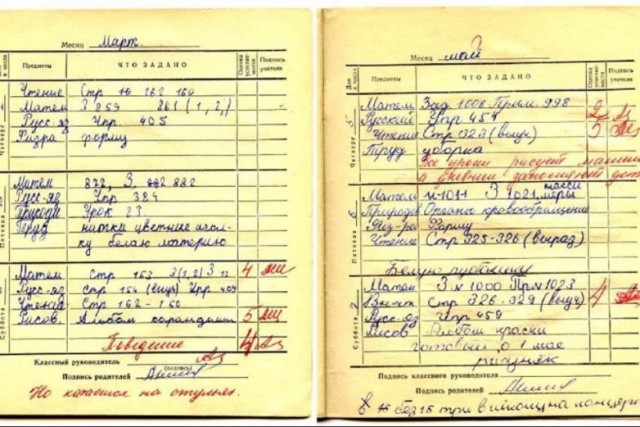 Месяц Март
Дни и числа Предметы ЧТО ЗАДАНО Оценка успеваемости Подпись учителя
Четверг
Чтение Стр 162 160
Матем 3 259 261 (1, 2,)
Русс-яз Упр 405
Физра форму
Пятница
Матем 872, 3. 882
Русс-яз Упр 384
Урок 23
Труд нитки цветные иголку белую материю
Суббота
Матем Стр 153 3 (1,2) 3 4
Русс-яз Стр 154 (выуч) Упр 409
Чтение Стр 162 - 160
Рисов. Альбом карандаши 5
Поведение 4
Классный руководитель
Подпись родителей
Но катается на
Месяц май
Дни и числа Предметы ЧТО ЗАДАНО Оценка успеваемости Подпись учителя
Четверг
Матем Зад 1006 Прим 998 2
Русский Упр 454
Чтение Стр 323 (выуч) 5
Труд уборка
Все уроки рисует машины
а дневник заполняют
Пятница 6
Матем №1011 3 1021 массы меры
Природов Органы кровообращения
Физ-ра Форму
Чтение Стр 325-326 (выраз)
Белую рубашку
Суббота
Матем 3 № 1000 Прм 1023 4
Стр 326-329 (выуч)
Русс-яз Упр 459
Рисов Альбом краски
готовый о 1 мае
рисунок
Подпись классного руководителя
Подпись родителей